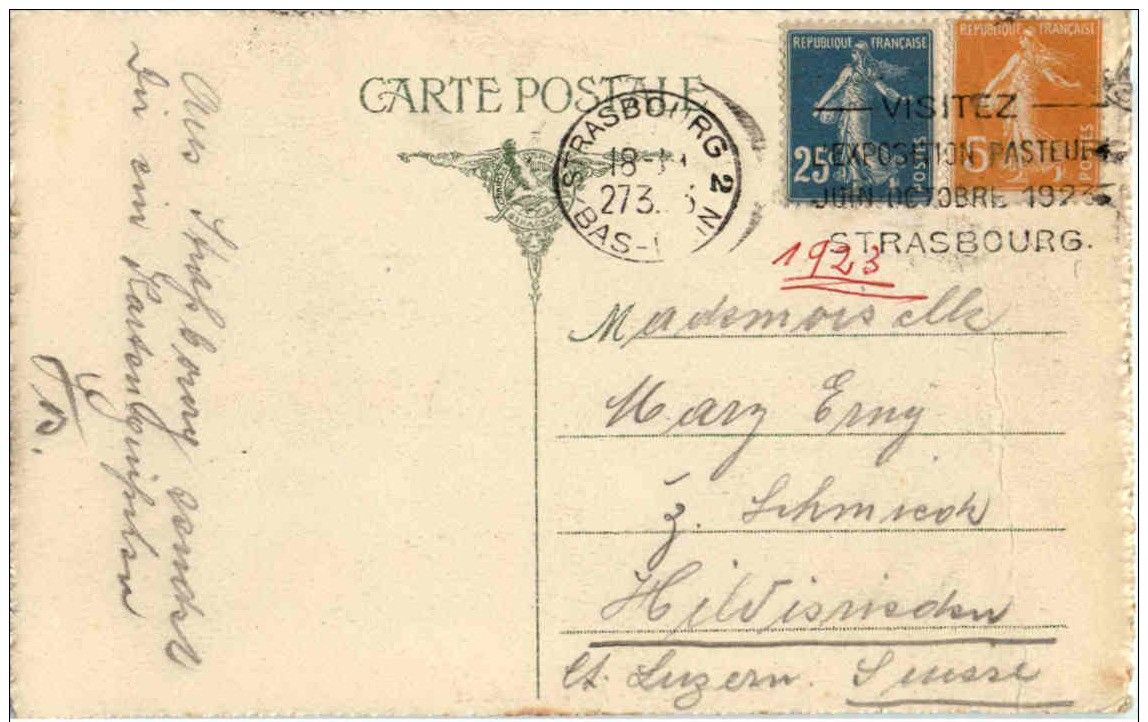 CARTE POSTALE
REPUBLIQUE FRANÇAISE
25
POSTES
REPUBLIQUE FRANÇAISE
5
POSTES
STRASBOURG 2 N
18-
273.
BAS-
VISITEZ
EXPOSITION PASTEUR
JUIN-OCTOBRE 1923
STRASBOURG.
1923
Mademoiselle
Mary Erny
z. Schmieok
Hildisrieden
Ct. Luzern. Suisse
Aus Straßburg sendet
Dir ein Kartengrüßchen